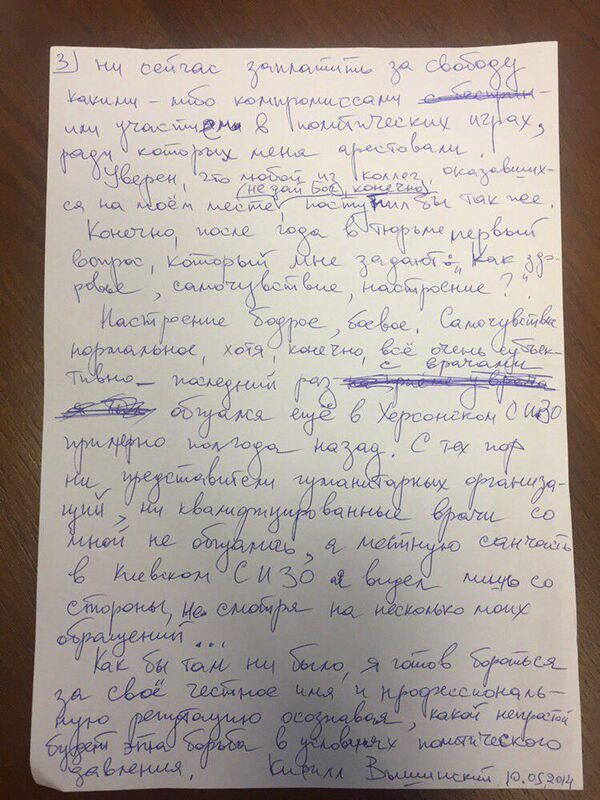 3) ни сейчас заплатить за свободу
какими-либо компромиссами
или участием в политических играх,
ради которых меня арестовали.
Уверен, что любой из коллег, оказавших-
(не дай Бог, конечно)
ся на моём месте, поступил бы так же.
Конечно, после года в тюрьме первый
вопрос, который мне задают: „Как здо-
ровье, самочувствие, настроение?"
Настроение бодрое, боевое. Самочувствие
нормальное, хотя, конечно, всё очень субъек-
с врачами
тивно – последний раз
общался ещё в Херсонском СИЗО
примерно полгода назад. С тех пор
ни представители гуманитарных организа-
ций, ни квалифицированные врачи со
мной не общались, а местную санчасть
в Киевском СИЗО я видел лишь со
стороны, не смотря на несколько моих
обращений...
Как бы там ни было, я готов бороться
за своё честное имя и профессиональ-
ную репутацию осознавая, какой непростой
будет эта борьба в условиях политического
давления. Кирилл Вышинский 10.05.2014